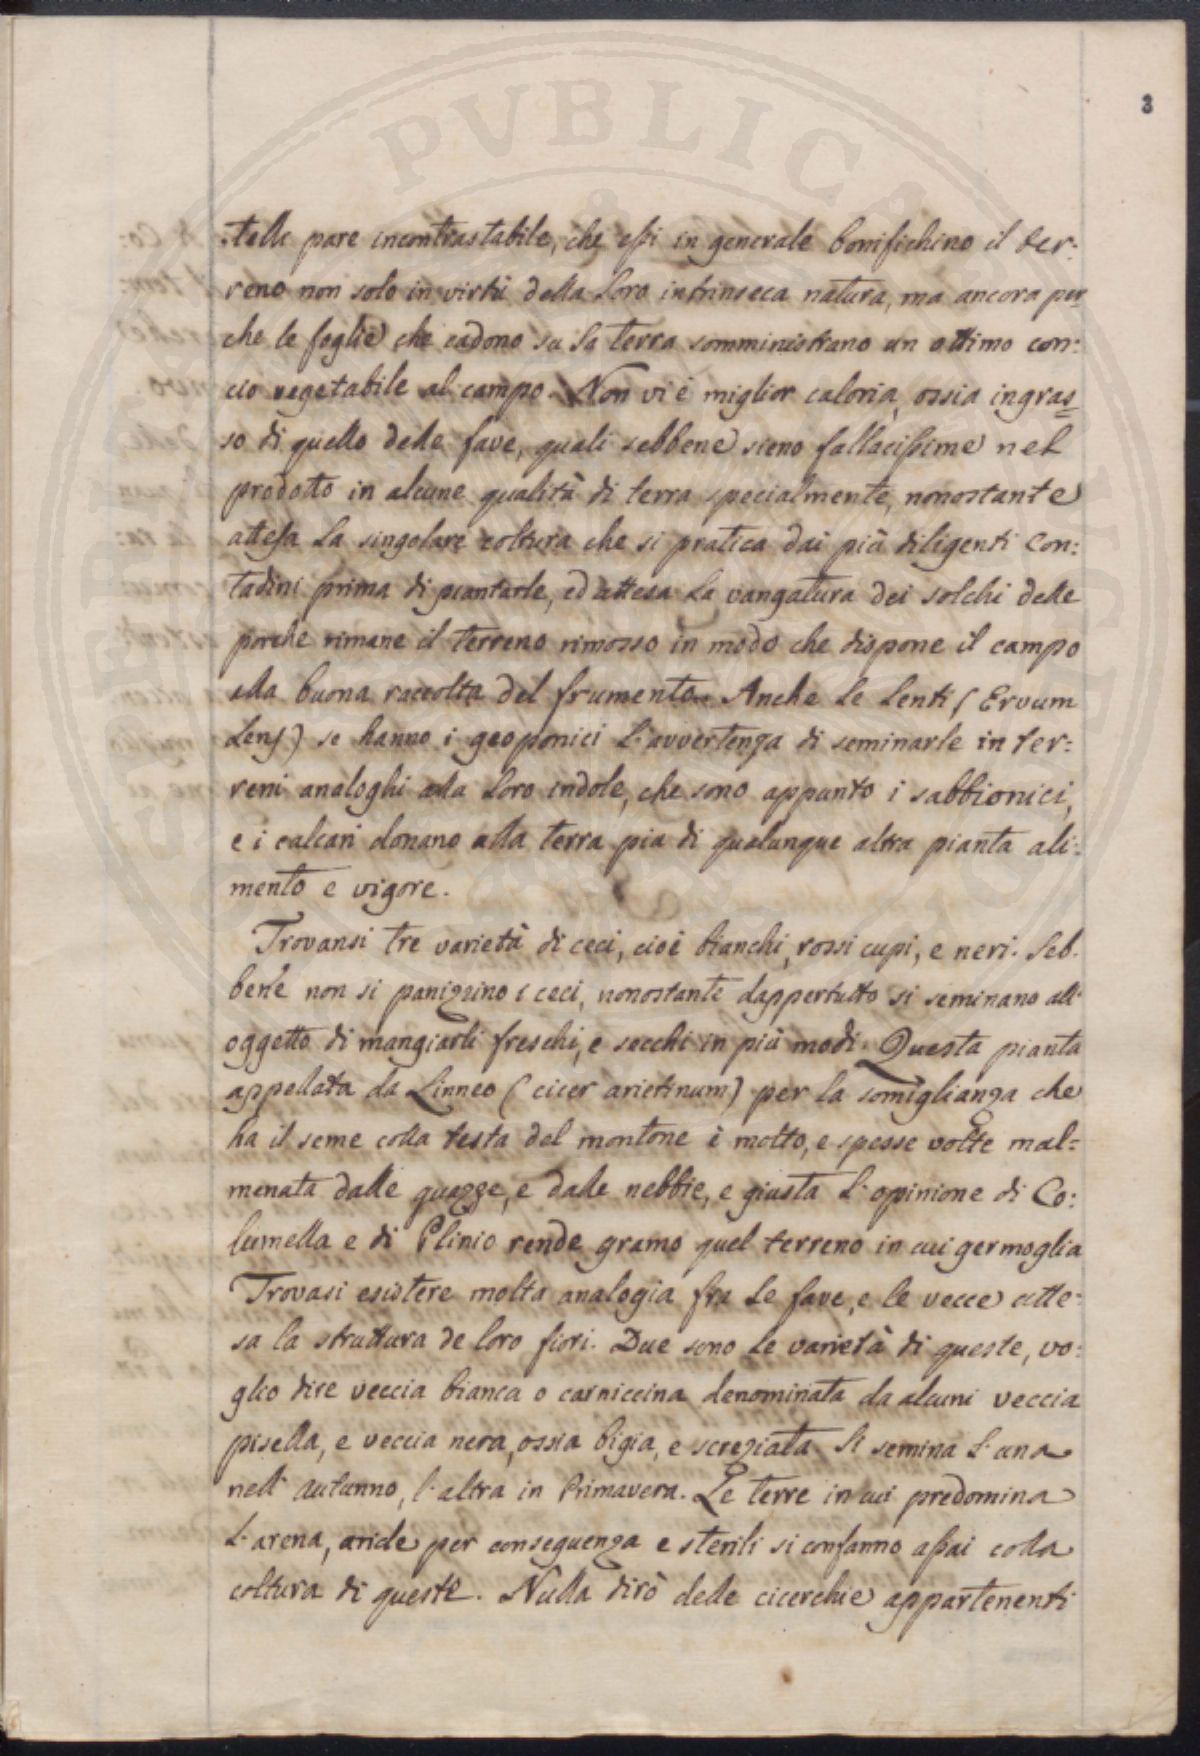 3
:telle pare incontrastabile, che eſsi in generale bonifichino il ter:
reno non solo in virtù della loro intrinseca natura, ma ancora per
che le foglie che cadono su la terra somministrano un ottimo con:
cio vegetabile al campo. Non vi è miglior caloria, ossia ingras=
so di quello delle fave, quali sebbene sieno fallaciſsime nel
prodotto in alcune qualità di terra specialmente, nonostante
atteſa la singolare coltura che si pratica dai più diligenti Con:
tadini prima di piantarle, ed attesa la vangatura dei solchi delle
porche rimane il terreno rimosso in modo che dispone il campo
alla buona raccolta del frumento. Anche le Lenti (Ervum
Lenſ) se hanno i geoponici l'avvertenza di seminarle in ter:
reni analoghi alla loro indole, che sono appunto i sabbionici,
e i calcari donano alla terra più di qualunque altra pianta ali:
mento e vigore.
Trovansi tre varietà di ceci, cioè bianchi, rossi cupi, e neri. Seb.
bene non si panizzino i ceci, nonostante dappertutto si seminano all'
oggetto di mangiarli freschi, e secchi in più modi. Questa pianta
appellata da Linneo (cicer arietinum) per la somiglianza che
ha il seme colla testa del montone è molto, e spesse volte mal=
menata dalle guazze, e dalle nebbie, e giusta l'opinione di Co:
lumella e di Plinio rende gramo quel terreno in cui germoglia
Trovasi esistere molta analogia fra le fave, e le vecce atte:
sa la struttura de loro fiori. Due sono le varietà di queste, vo:
glio dire veccia bianca o carniccina denominata da alcuni veccia
pisella, e veccia nera, ossia bigia, e screziata. Si semina l'una
nell' autunno, l'altra in Primavera. Le terre in cui predomina
l'arena, aride per conseguenza e sterili si confanno aſsai colla
coltura di queste. Nulla dirò delle cicerchie appartenenti
PVBLICA